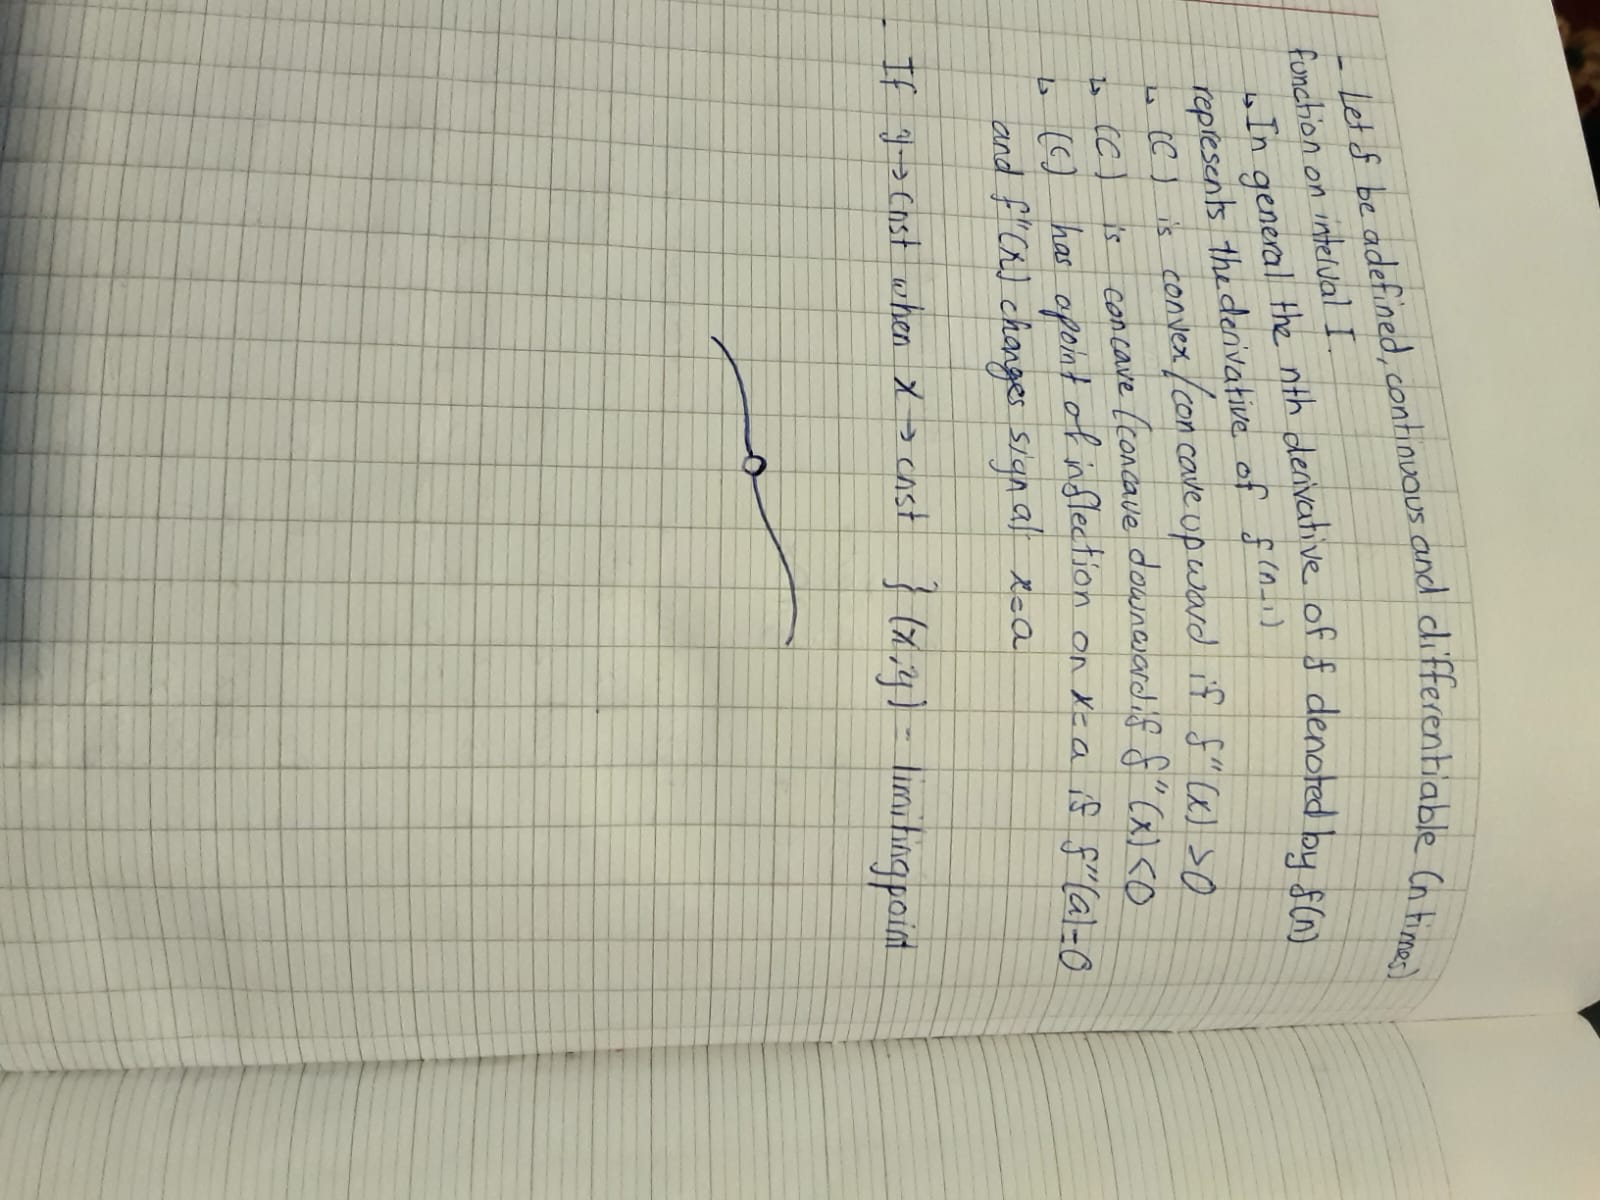 - Let f be a defined, continuous and differentiable (n times)
function on interval I.
↳ In general the nth derivative of f denoted by f(n)
represents the derivative of f(n-1)
↳ (C) is convex/concave upward if f"(x) >0
↳ (C) is concave (concave downward if f"(x) <0
↳ (C) has a point of inflection on x=a if f"(a)=0
and f"(x) changes sign at x=a
- If y→cnst when x→cnst } (x,y) - limiting point